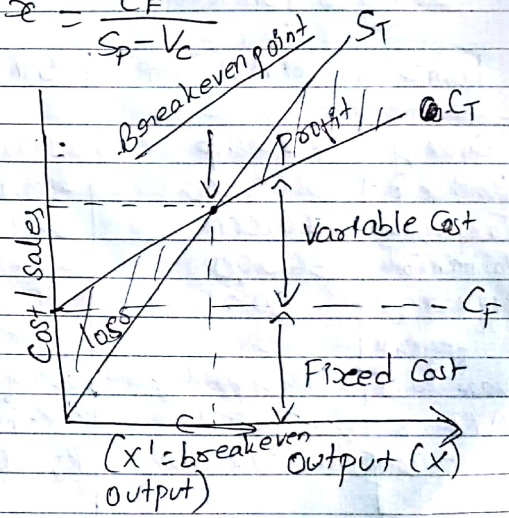 x = CF
Sp - Vc
Breakeven point
ST
Profit
CT
Variable Cost
Cost / Sales
loss
CF
Fixed Cost
(x' = breakeven
output)
output (x)